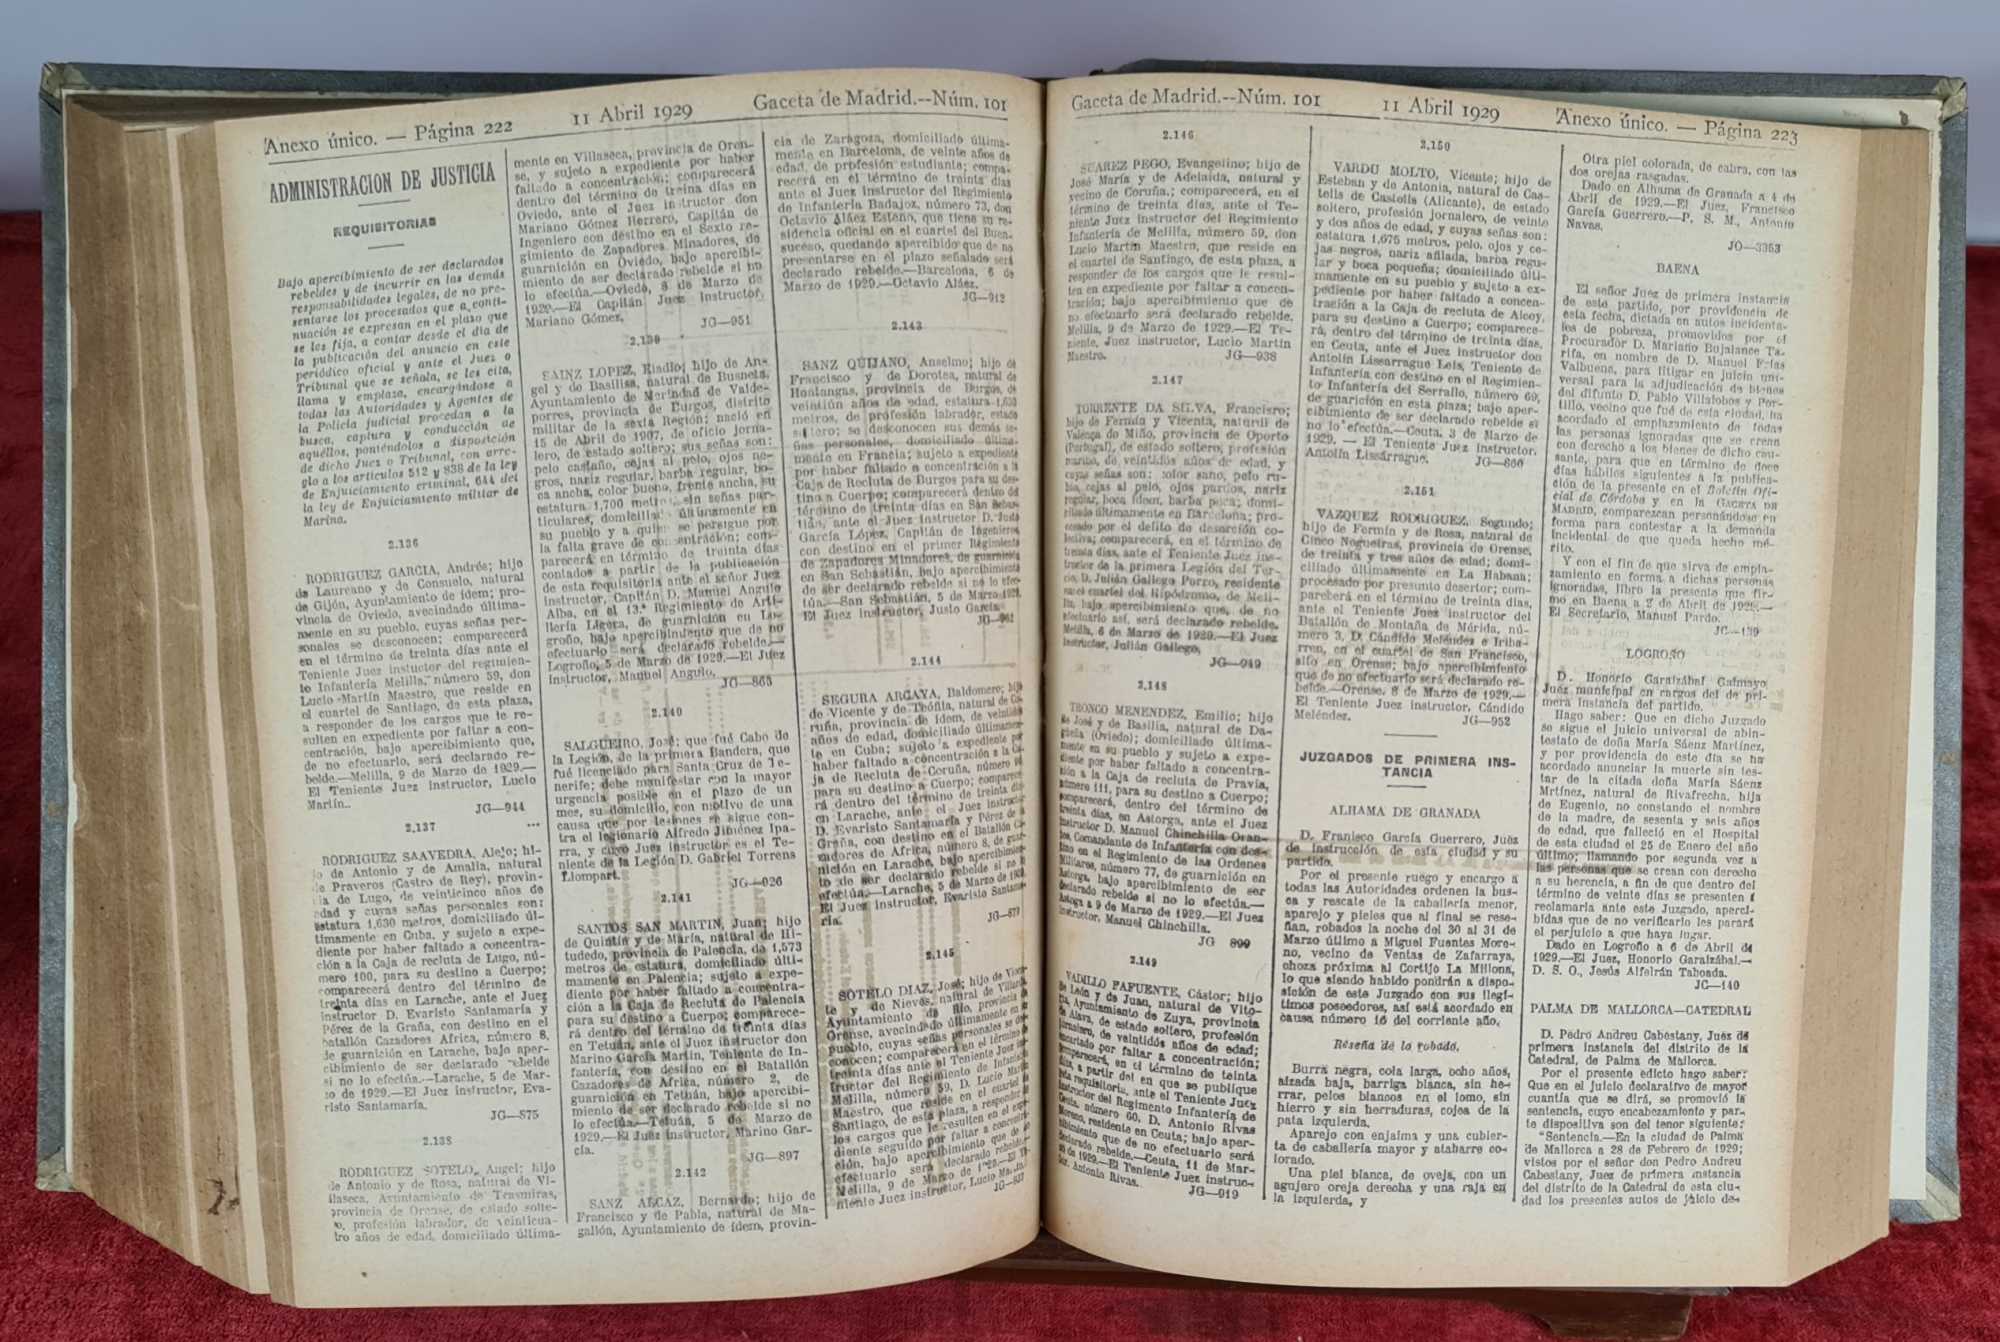 Anexo único. — Página 222
11 Abril 1929
Gaceta de Madrid.--Núm. 101
ADMINISTRACION DE JUSTICIA
REQUISITORIAS
Bajo apercibimiento de ser declarados
rebeldes y de incurrir en las demás
responsabilidades legales, de no pre-
sentarse los procesados que a conti-
nuación se expresan en el plazo que
se les fija, a contar desde el día de
la publicación del anuncio en este
periódico oficial y ante el Juez o
Tribunal que se señala, se les cita,
llama y emplaza, encargándose a
todas las Autoridades y Agentes de
la Policía judicial procedan a la
busca, captura y conducción de
aquéllos, poniéndolos a disposición
de dicho Juez o Tribunal, con arre-
glo a los artículos 512 y 838 de la ley
de Enjuiciamiento criminal, 644 del
la ley de Enjuiciamiento militar de
Marina.
2.136
RODRIGUEZ GARCIA, Andrés; hijo
de Laureano y de Consuelo, natural
de Gijón, Ayuntamiento de ídem; pro-
vincia de Oviedo, avecindado última-
mente en su pueblo, cuyas señas per-
sonales se desconocen; comparecerá
en el término de treinta días ante el
Teniente Juez instuctor del regimien-
to Infantería Melilla, número 59, don
Lucio Martín Maestro, que reside en
el cuartel de Santiago, de esta plaza,
a responder de los cargos que le re-
sulten en expediente por faltar a con-
centración, bajo apercibimiento que,
de no efectuarlo, será declarado re-
belde.—Melilla, 9 de Marzo de 1929.—
El Teniente Juez instructor, Lucio
Martín.
JG—944
2.137
RODRIGUEZ SAAVEDRA, Alejo; hi-
jo de Antonio y de Amalia, natural
de Praveros (Castro de Rey), provin-
cia de Lugo, de veinticinco años de
edad y cuyas señas personales son:
estatura 1,630 metros, domiciliado úl-
timamente en Cuba, y sujeto a expe-
diente por haber faltado a concentra-
ción a la Caja de recluta de Lugo, nú-
mero 100, para su destino a Cuerpo;
comparecerá dentro del término de
treinta días en Larache, ante el Juez
instructor D. Evaristo Santamaría y
Pérez de la Graña, con destino en el
batallón Cazadores Africa, número 8,
de guarnición en Larache, bajo aper-
cibimiento de ser declarado rebelde
si no lo efectúa.—Larache, 5 de Mar-
zo de 1929.—El Juez instructor, Eva-
risto Santamaría.
JG—875
2.138
RODRIGUEZ SOTELO, Angel; hijo
de Antonio y de Rosa, natural de Vi-
llaseca, Ayuntamiento de Trasmiras,
provincia de Orense, de estado solte-
ro, profesión labrador, de veinticua-
tro años de edad, domiciliado última-
mente en Villaseca, provincia de Oren-
se, y sujeto a expediente por haber
faltado a concentración; comparecerá
dentro del término de treina días en
Oviedo, ante el Juez instructor don
Mariano Gómez Herrero, Capitán de
Ingeniero con destino en el Sexto re-
gimiento de Zapadores Minadores, de
guarnición en Oviedo, bajo apercibi-
miento de ser declarado rebelde si no
lo efectúa.—Oviedo, 8 de Marzo de
1929.—El Capitán Juez Instructor,
Mariano Gómez.
JG—951
2.139
SAINZ LOPEZ, Eladio; hijo de An-
gel y de Basilisa, natural de Busnela,
Ayuntamiento de Merindad de Valde-
porres, provincia de Burgos, distrito
militar de la sexta Región; nació en
15 de Abril de 1907, de oficio jorna-
lero, de estado soltero; sus señas son:
pelo castaño, cejas al pelo, ojos ne-
gros, nariz regular, barba regular, bo-
ca ancha, color bueno, frente ancha, su
estatura 1,700 metros, sin señas par-
ticulares, domiciliado últimamente en
su pueblo y a quien se persigue por
la falta grave de concentración; com-
parecerá en término de treinta días
contados a partir de la publicación
de esta requisitoria ante el señor Juez
instructor, Capitán D. Manuel Angulo
Alba, en el 13.º Regimiento de Arti-
llería Ligera, de guarnición en Lo-
groño, bajo apercibimiento que de no
efectuarlo será declarado rebelde.—
Logroño, 5 de Marzo de 1929.—El Juez
Instructor, Manuel Angulo.
JG—863
2.140
SALGUEIRO, José; que fué Cabo de
la Legión, de la primera Bandera, que
fué licenciado para Santa Cruz de Te-
nerife; debe manifestar con la mayor
urgencia posible en el plazo de un
mes, su domicilio, con motivo de una
causa que por lesiones se sigue con-
tra el legionario Alfredo Jiménez Ipa-
rra, y cuyo Juez instructor es el Te-
niente de la Legión D. Gabriel Torrens
Llompart.
JG—926
2.141
SANTOS SAN MARTIN, Juan; hijo
de Quintín y de María, natural de Hi-
tudedo, provincia de Palencia, de 1,573
metros de estatura, domiciliado últi-
mamente en Palencia; sujeto a expe-
diente por haber faltado a concentra-
ción a la Caja de Recluta de Palencia
para su destino a Cuerpo; comparece-
rá dentro del término de treinta días
en Tetuán, ante el Juez instructor don
Marino García Martín, Teniente de In-
fantería, con destino en el Batallón
Cazadores de Africa, número 2, de
guarnición en Tetuán, bajo apercibi-
miento de ser declarado rebelde si no
lo efectúa.—Tetuán, 5 de Marzo de
1929.—El Juez instructor, Marino Gar-
cía.
JG—897
2.142
SANZ ALCAZ, Bernardo; hijo de
Francisco y de Pabla, natural de Ma-
gallón, Ayuntamiento de ídem, provin-
cia de Zaragoza, domiciliado última-
mente en Barcelona, de veinte años de
edad, de profesión estudiante; compa-
recerá en el término de treinta días
ante el Juez instructor del Regimiento
de Infantería Badajoz, número 73, don
Octavio Aláez Esteno, que tiene su re-
sidencia oficial en el cuartel del Buen-
suceso, quedando apercibido que de no
presentarse en el plazo señalado será
declarado rebelde.—Barcelona, 6 de
Marzo de 1929.—Octavio Aláez.
JG—912
2.143
SANZ QUIJANO, Anselmo; hijo de
Francisco y de Dorotea, natural de
Hontangas, provincia de Burgos, de
veintiún años de edad, estatura 1,630
metros, de profesión labrador, estado
soltero; se desconocen sus demás se-
ñas personales, domiciliado última-
mente en Francia; sujeto a expediente
por haber faltado a concentración a la
Caja de Recluta de Burgos para su des-
tino a Cuerpo; comparecerá dentro del
término de treinta días en San Sebas-
tián, ante el Juez instructor D. Justo
García López, Capitán de Ingenieros
con destino en el primer Regimiento
de Zapadores Minadores, de guarnición
en San Sebastián, bajo apercibimiento
de ser declarado rebelde si no lo efec-
túa.—San Sebastián, 5 de Marzo 1929.
El Juez instructor, Justo García.
2.144
SEGURA ARCAYA, Baldomero; hijo
de Vicente y de Teófila, natural de Co-
ruña, provincia de ídem, de veintidós
años de edad, domiciliado últimamen-
te en Cuba; sujeto a expediente por
haber faltado a concentración a la Ca-
ja de Recluta de Coruña, número
para su destino a Cuerpo; comparece-
rá dentro del término de treinta días
en Larache, ante el Juez instructor
D. Evaristo Santamaría y Pérez de la
Graña, con destino en el Batallón Ca-
zadores de Africa, número 8, de guar-
nición en Larache, bajo apercibimien-
to de ser declarado rebelde si no lo
efectúa.—Larache, 5 de Marzo de 1929.
El Juez instructor, Evaristo Santama-
ría.
JG—879
2.145
SOTELO DIAZ, José; hijo de Vicen-
te y de Nieves, natural de
Ayuntamiento de Río, provincia de
Orense, avecindado últimamente en su
pueblo, cuyas señas personales se des-
conocen; comparecerá en el término de
treinta días ante el Teniente Juez ins-
tructor del Regimiento de Infantería
Melilla, número 59, D. Lucio Martín
Maestro, que reside en el cuartel de
Santiago, de esta plaza, a responder de
los cargos que le resulten en el expe-
diente seguido por faltar a concentra-
ción, bajo apercibimiento que de no
efectuarlo será declarado rebelde.—
Melilla, 9 de Marzo de 1929.—El Te-
niente Juez instructor, Lucio Martín.
JG—937
Gaceta de Madrid.--Núm. 101
11 Abril 1929
Anexo único. — Página 223
2.146
SUAREZ PEGO, Evangelino; hijo de
José María y de Adelaida, natural y
vecino de Coruña.; comparecerá, en el
término de treinta días, ante el Te-
niente Juez instructor del Regimiento
Infantería de Melilla, número 59, don
Lucio Martín Maestro, que reside en
el cuartel de Santiago, de esta plaza, a
responder de los cargos que le resul-
ten en expediente por faltar a concen-
tración; bajo apercibimiento que de
no efectuarlo será declarado rebelde.
Melilla, 9 de Marzo de 1929.—El Te-
niente, Juez instructor, Lucio Martín
Maestro.
JG—938
2.147
TORRENTE DA SILVA, Francisco;
hijo de Fermda y Vicenta, naturil de
Valença do Miño, provincia de Oporto
(Portugal), de estado soltero, profesión
marino, de veintidós años de edad, y
cuyas señas son: color sano, pelo ru-
bio, cejas al pelo, ojos pardos, nariz
regular, boca ídem, barba poca; domi-
ciliado últimamente en Barcelona; pro-
cesado por el delito de deserción co-
lectiva; comparecerá, en el término de
treinta días, ante el Teniente Juez ins-
tructor de la primera Legión del Ter-
cio, D. Julián Gallego Porro, residente
en el cuartel del Hipódromo, de Meli-
lla, bajo apercibimiento que, de no
efectuarlo así, será declarado rebelde.
Melilla, 6 de Marzo de 1929.—El Juez
instructor, Julián Gallego.
JG—949
2.148
TRONCO MENENDEZ, Emilio; hijo
de José y de Basilia, natural de Da-
güeña (Oviedo); domiciliado última-
mente en su pueblo y sujeto a expe-
diente por haber faltado a concentra-
ción a la Caja de recluta de Pravia,
número 111, para su destino a Cuerpo;
comparecerá, dentro del término de
treinta días, en Astorga, ante el Juez
instructor D. Manuel Chinchilla Oran-
tos, Comandante de Infantería con des-
tino en el Regimiento de las Ordenes
Militares, número 77, de guarnición en
Astorga, bajo apercibimiento de ser
declarado rebelde si no lo efectúa.—
Astoga a 9 de Marzo de 1929.—El Juez
instructor, Manuel Chinchilla.
JG 899
2.149
VADILLO FAFUENTE, Cástor; hijo
de León y de Juan, natural de Vito-
ria, Ayuntamiento de Zuya, provincia
de Alava, de estado soltero, profesión
jornalero, de veintidós años de edad;
encartado por faltar a concentración;
comparecerá, en el término de teinta
días, a partir del en que se publique
esta requisitoria, ante el Teniente Juez
instructor del Regimiento Infantería de
Ceuta, número 60, D. Antonio Rivas
Moreno, residente en Ceuta; bajo aper-
cibimiento que de no efectuarlo será
declarado rebelde.—Ceuta, 11 de Mar-
zo de 1929.—El Teniente Juez instruc-
tor, Antonio Rivas.
JG—919
2.150
VARDU MOLTO, Vicente; hijo de
Esteban y de Antonia, natural de Cas-
tells de Castells (Alicante), de estado
soltero, profesión jornalero, de veinte
y dos años de edad, y cuyas señas son:
estatura 1,675 metros, pelo, ojos y ce-
jas negros, nariz afilada, barba regu-
lar y boca pequeña; domiciliado últi-
mamente en su pueblo y sujeto a ex-
pediente por haber faltado a concen-
tración a la Caja de recluta de Alcoy,
para su destino a Cuerpo; comparece-
rá, dentro del término de treinta días,
en Ceuta, ante el Juez instructor don
Antolín Lissarrague Leis, Teniente de
Infantería con destino en el Regimien-
to Infantería del Serrallo, número 69,
de guarición en esta plaza; bajo aper-
cibimiento de ser declarado rebelde si
no lo efectúa.—Ceuta, 3 de Marzo de
1929. — El Teniente Juez instructor.
Antolín Lissárrague.
JG—866
2.151
VAZQUEZ RODRIGUEZ, Segundo;
hijo de Fermín y de Rosa, natural de
Cinco Nogueiras, provincia de Orense,
de treinta y tres años de edad; domi-
ciliado últimamente en La Habana;
procesado por presunto desertor; com-
parecerá en el término de treinta días,
ante el Teniente Juez instructor del
Batallón de Montaña de Mérida, nú-
mero 3, D. Cándido Meléndez e Iriba-
rren, en el cuartel de San Francisco,
sito en Orense; bajo apercibimiento
que de no efectuarlo será declarado re-
belde.—Orense, 8 de Marzo de 1929.—
El Teniente Juez instructor, Cándido
Meléndez.
JG—952
JUZGADOS DE PRIMERA INS-
TANCIA
ALHAMA DE GRANADA
D. Franisco García Guerrero, Juez
de instrucción de esta ciudad y su
partido.
Por el presente ruego y encargo a
todas las Autoridades ordenen la bus-
ca y rescate de la caballería menor,
aparejo y pieles que al final se rese-
ñan, robados la noche del 30 al 31 de
Marzo último a Miguel Fuentes More-
no, vecino de Ventas de Zafarraya,
choza próxima al Cortijo La Millona,
lo que siendo habido pondrán a dispo-
sición de este Juzgado con sus ilegí-
timos poseedores, así está acordado en
causa número 16 del corriente año.
Reseña de lo robado.
Burra negra, cola larga, ocho años,
alzada baja, barriga blanca, sin he-
rrar, pelos blancos en el lomo, sin
hierro y sin herraduras, cojea de la
pata izquierda.
Aparejo con enjalma y una cubier-
ta de caballería mayor y atabarre co-
lorado.
Una piel blanca, de oveja, con un
agujero oreja derecha y una raja en
la izquierda, y
Otra piel colorada, de cabra, con las
dos orejas rasgadas.
Dado en Alhama de Granada a 4 de
Abril de 1929.—El Juez, Francisco
García Guerrero.—P. S. M., Antonio
Navas.
JO—3353
BAENA
El señor Juez de primera instancia
de este partido, por providencia de
esta fecha, dictada en autos incidenta-
les de pobreza, promovidos por el
Procurador D. Mariano Bujalance Ta-
rifa, en nombre de D. Manuel Frías
Valbuena, para litigar en juicio uni-
versal para la adjudicación de bienes
del difunto D. Pablo Villalobos y Por-
tillo, vecino que fué de esta ciudad, ha
acordado el emplazamiento de todas
las personas ignoradas que se crean
con derecho a los bienes de dicho cau-
sante, para que en término de doce
días hábiles siguientes a la publica-
ción de la presente en el Boletín Ofi-
cial de Córdoba y en la GACETA DE
MADRID, comparezcan personándose en
forma para contestar a la demanda
incidental de que queda hecho mé-
rito.
Y con el fin de que sirva de empla-
zamiento en forma a dichas personas
ignoradas, libro la presente que fir-
mo en Baena a 2 de Abril de 1929.—
El Secretario, Manuel Pardo.
JC—139
LOGROÑO
D. Honorio Garaizábal Galmayo,
Juez municipal en cargos del de pri-
mera instancia del partido.
Hago saber: Que en dicho Juzgado
se sigue el juicio universal de abin-
testato de doña María Sáenz Martínez,
y por providencia de este día se ha
acordado anunciar la muerte sin tes-
tar de la citada doña María Sáenz
Mrtínez, natural de Rivafrecha, hija
de Eugenio, no constando el nombre
de la madre, de sesenta y seis años
de edad, que falleció en el Hospital
de esta ciudad el 25 de Enero del año
último; llamando por segunda vez a
las personas que se crean con derecho
a su herencia, a fin de que dentro del
término de veinte días se presenten a
reclamarla ante este Juzgado, aperci-
bidas que de no verificarlo les parará
el perjuicio a que haya lugar.
Dado en Logroño a 6 de Abril de
1929.—El Juez, Honorio Garaizábal.—
D. S. O., Jesús Alfeirán Taboada.
JC—140
PALMA DE MALLORCA—CATEDRAL
D. Pedro Andreu Cabestany, Juez de
primera instancia del distrito de la
Catedral, de Palma de Mallorca.
Por el presente edicto hago saber:
Que en el juicio declarativo de mayor
cuantía que se dirá, se promovió la
sentencia, cuyo encabezamiento y par-
te dispositiva son del tenor siguiente:
"Sentencia.—En la ciudad de Palma
de Mallorca a 28 de Febrero de 1929;
vistos por el señor don Pedro Andreu
Cabestany, Juez de primera instancia
del distrito de la Catedral de esta ciu-
dad los presentes autos de juicio de-